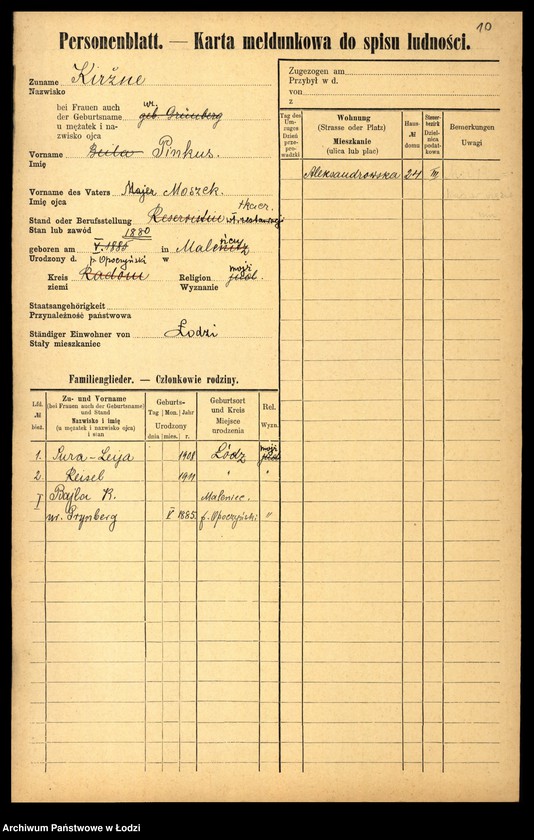 10
Personenblatt. — Karta meldunkowa do spisu ludności.
Zuname Kirżne
Nazwisko
bei Frauen auch
der Geburtsname geb. Grünberg
u mężatek i na-
zwisko ojca
Vorname Beila Pinkus.
Imię
Vorname des Vaters Majer Moszek.
Imię ojca
tkacz.
Stand oder Berufsstellung Reservistin
Stan lub zawód 1880
geboren am V. 1886 in Malenicz
Urodzony d. p. Opoczyński w
Kreis Radom Religion mojż
ziemi Wyznanie
Staatsangehörigkeit
Przynależność państwowa
Ständiger Einwohner von Łodzi
Stały mieszkaniec
Zugezogen am
Przybył w d.
von
z
Tag des Um-zuges Dzień prze-pro-wadzki
Wohnung
(Strasse oder Platz)
Mieszkanie
(ulica lub plac)
Haus-
№
domu
Steuer-
bezirk
Dziel-
nica
podat-
kowa
Bemerkungen
Uwagi
Aleksandrowska 24 III
Familienglieder. — Członkowie rodziny.
Lfd.
№
bież.
Zu- und Vorname
(bei Frauen auch der Geburtsname)
und Stand
Nazwisko i imię
(u mężatek i nazwisko ojca)
i stan
Geburts-
Tag Mon. Jahr
Urodzony
dnia mies. r.
Geburtsort
und Kreis
Miejsce
urodzenia
Rel.
Wyzn.
1. Sura-Leija 1908 Łódz mojż
2. Reisel 1911 " "
I Bajla K. Maleniec.
ur. Grynberg V 1885. p. Opoczyński "
Archiwum Państwowe w Łodzi